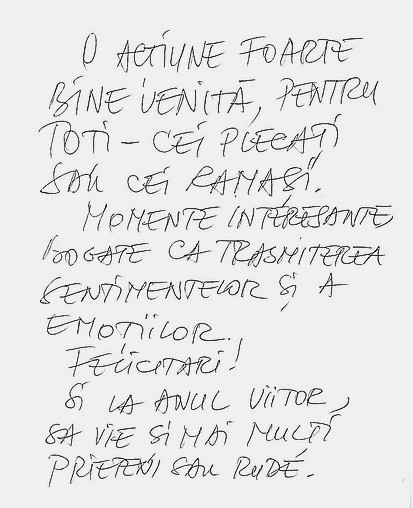 O ACTIUNE FOARTE
BINE VENITĂ, PENTRU
TOTI - CEI PLECAȚI
SAU CEI RAMAȘI.
MOMENTE INTERESANTE
BOGATE CA TRASMITEREA
SENTIMENTELOR ȘI A
EMOTIILOR.
FELICITARI!
SI LA ANUL VIITOR,
SA VIE SI MAI MULȚI
PRIETENI SAU RUDE.